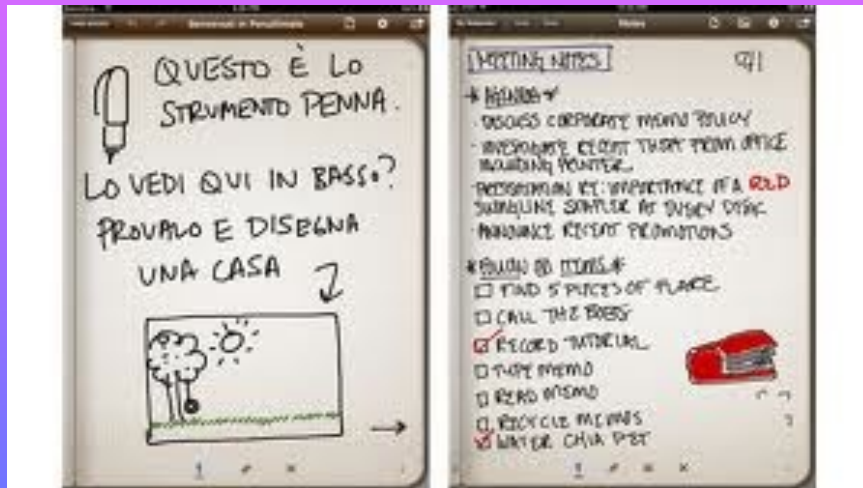 Benvenuti in Penultimate
QUESTO È LO
STRUMENTO PENNA.
LO VEDI QUI IN BASSO?
PROVALO E DISEGNA
UNA CASA
Notes
MEETING NOTES
9/1
* AGENDA *
· DISCUSS CORPORATE MEMO POLICY
· INVESTIGATE RECENT THEFT FROM OFFICE
INCLUDING PRINTER.
· PRESENTATION RE: IMPORTANCE OF A RED
SWINGLINE STAPLER AT EVERY DESK
· ANNOUNCE RECENT PROMOTIONS
* FOLLOW UP ITEMS *
FIND 5 PIECES OF FLARE
CALL THE BOBS
RECORD TUTORIAL
TYPE MEMO
READ MEMO
RECYCLE MEMOS
WATER CHIA PET